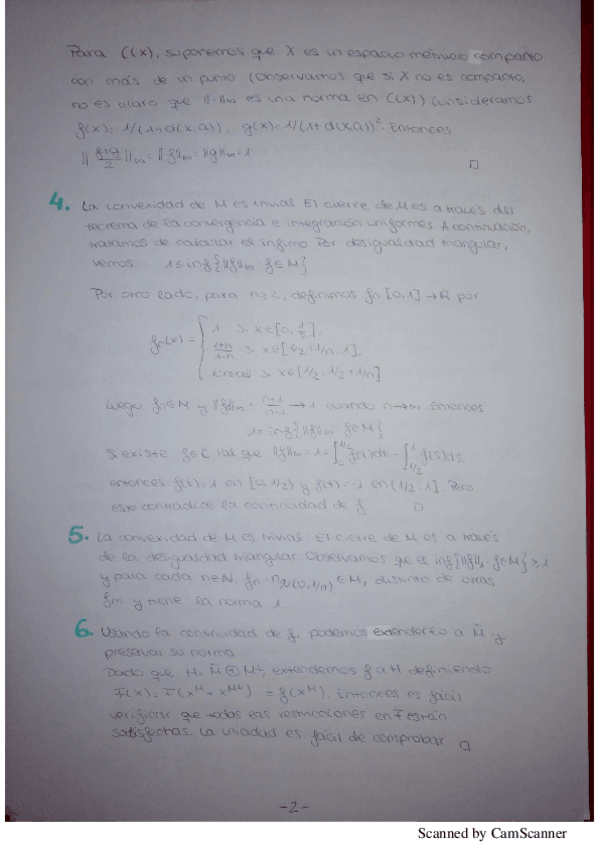 Para C(X), suponemos que X es un espacio métrico compacto
con más de un punto (Observamos que si X no es compacto,
no es claro que ||·||∞ es una norma en C(X)) Consideramos
f(x) = 1/(1+d(x,a)), g(x) = 1/(1+d(x,a))². Entonces
|| (f+g)/2 ||∞ = ||f||∞ = ||g||∞ = 1
□
4. La convexidad de M es trivial. El cierre de M es a través del
teorema de la convergencia e integración uniformes. A continuación,
tratamos de calcular el ínfimo. Por desigualdad triangular,
vemos 1 ≤ inf{||f||∞ : f∈M}
Por otro lado, para n≥2, definimos fn: [0,1] → R por
fn(x) =
1 si x∈[0, ],
(1+n)/(1-n) si x∈[1/2+1/n, 1],
lineal si x∈[1/2, 1/2+1/n]
Luego fn∈M y ||fn||∞ = → 1 cuando n→∞. Entonces
1 = inf{||f||∞ : f∈M}
Si existe f∈C tal que ||f||∞ = 1 = ∫₀^{1/2} f(t)dt - ∫_{1/2}^1 f(s)ds,
entonces f(t)=1 en [0,1/2) y f(t)=-1 en (1/2,1]. Pero
esto contradice la continuidad de f □
5. La convexidad de M es trivial. El cierre de M es a través
de la desigualdad triangular. Observamos que es inf{||f||₁ : f∈M} ≥ 1
y para cada n∈N, fn = (0,1/n) ∈ M, distinto de otras
fm y tiene la norma 1.
6. Usando la continuidad de f, podemos extenderlo a M̄ y
preservar su norma.
Dado que H = M̄ ⊕ M⊥, extendemos f a H definiendo
F(x) = F(x^M + x^{M⊥}) = f(x^M). Entonces es fácil
verificar que todas las restricciones en F están
satisfechas. La unicidad es fácil de comprobar □
-2-
Scanned by CamScanner